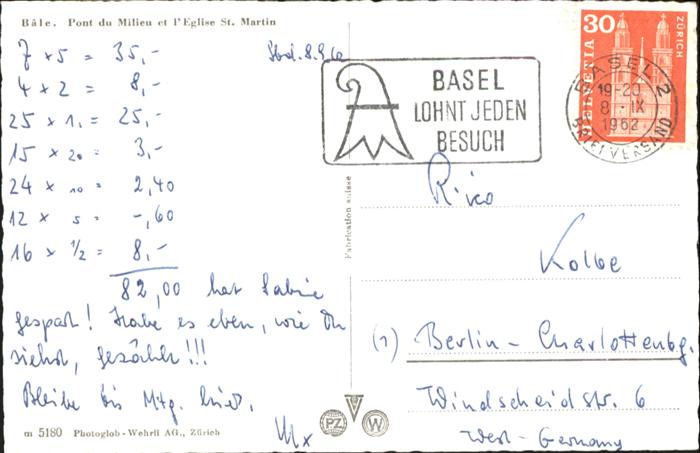 Bâle. Pont du Milieu et l'Eglise St. Martin
7 x 5 = 35,-
4 x 2 = 8,-
25 x 1,= 25,-
15 x 20 = 3,-
24 x 10 = 2,40
12 x 5 = -,60
16 x 1/2 = 8,-
82,00 hat Sabine
gespart! Habe es eben, wie Du
siehst, gezählt!!!
Bleibe bis Mtg. hier.
m 5180 Photoglob-Wehrli AG., Zürich
8.9.62
BASEL
LOHNT JEDEN
BESUCH
30
HELVETIA
ZÜRICH
BASEL 2
19-20
8.-IX
1962
BRIEFVERSAND
Fabrication suisse
Rico
Kolbe
(1) Berlin - Charlottenbg.
Windscheidstr. 6
West-Germany
PZ
W